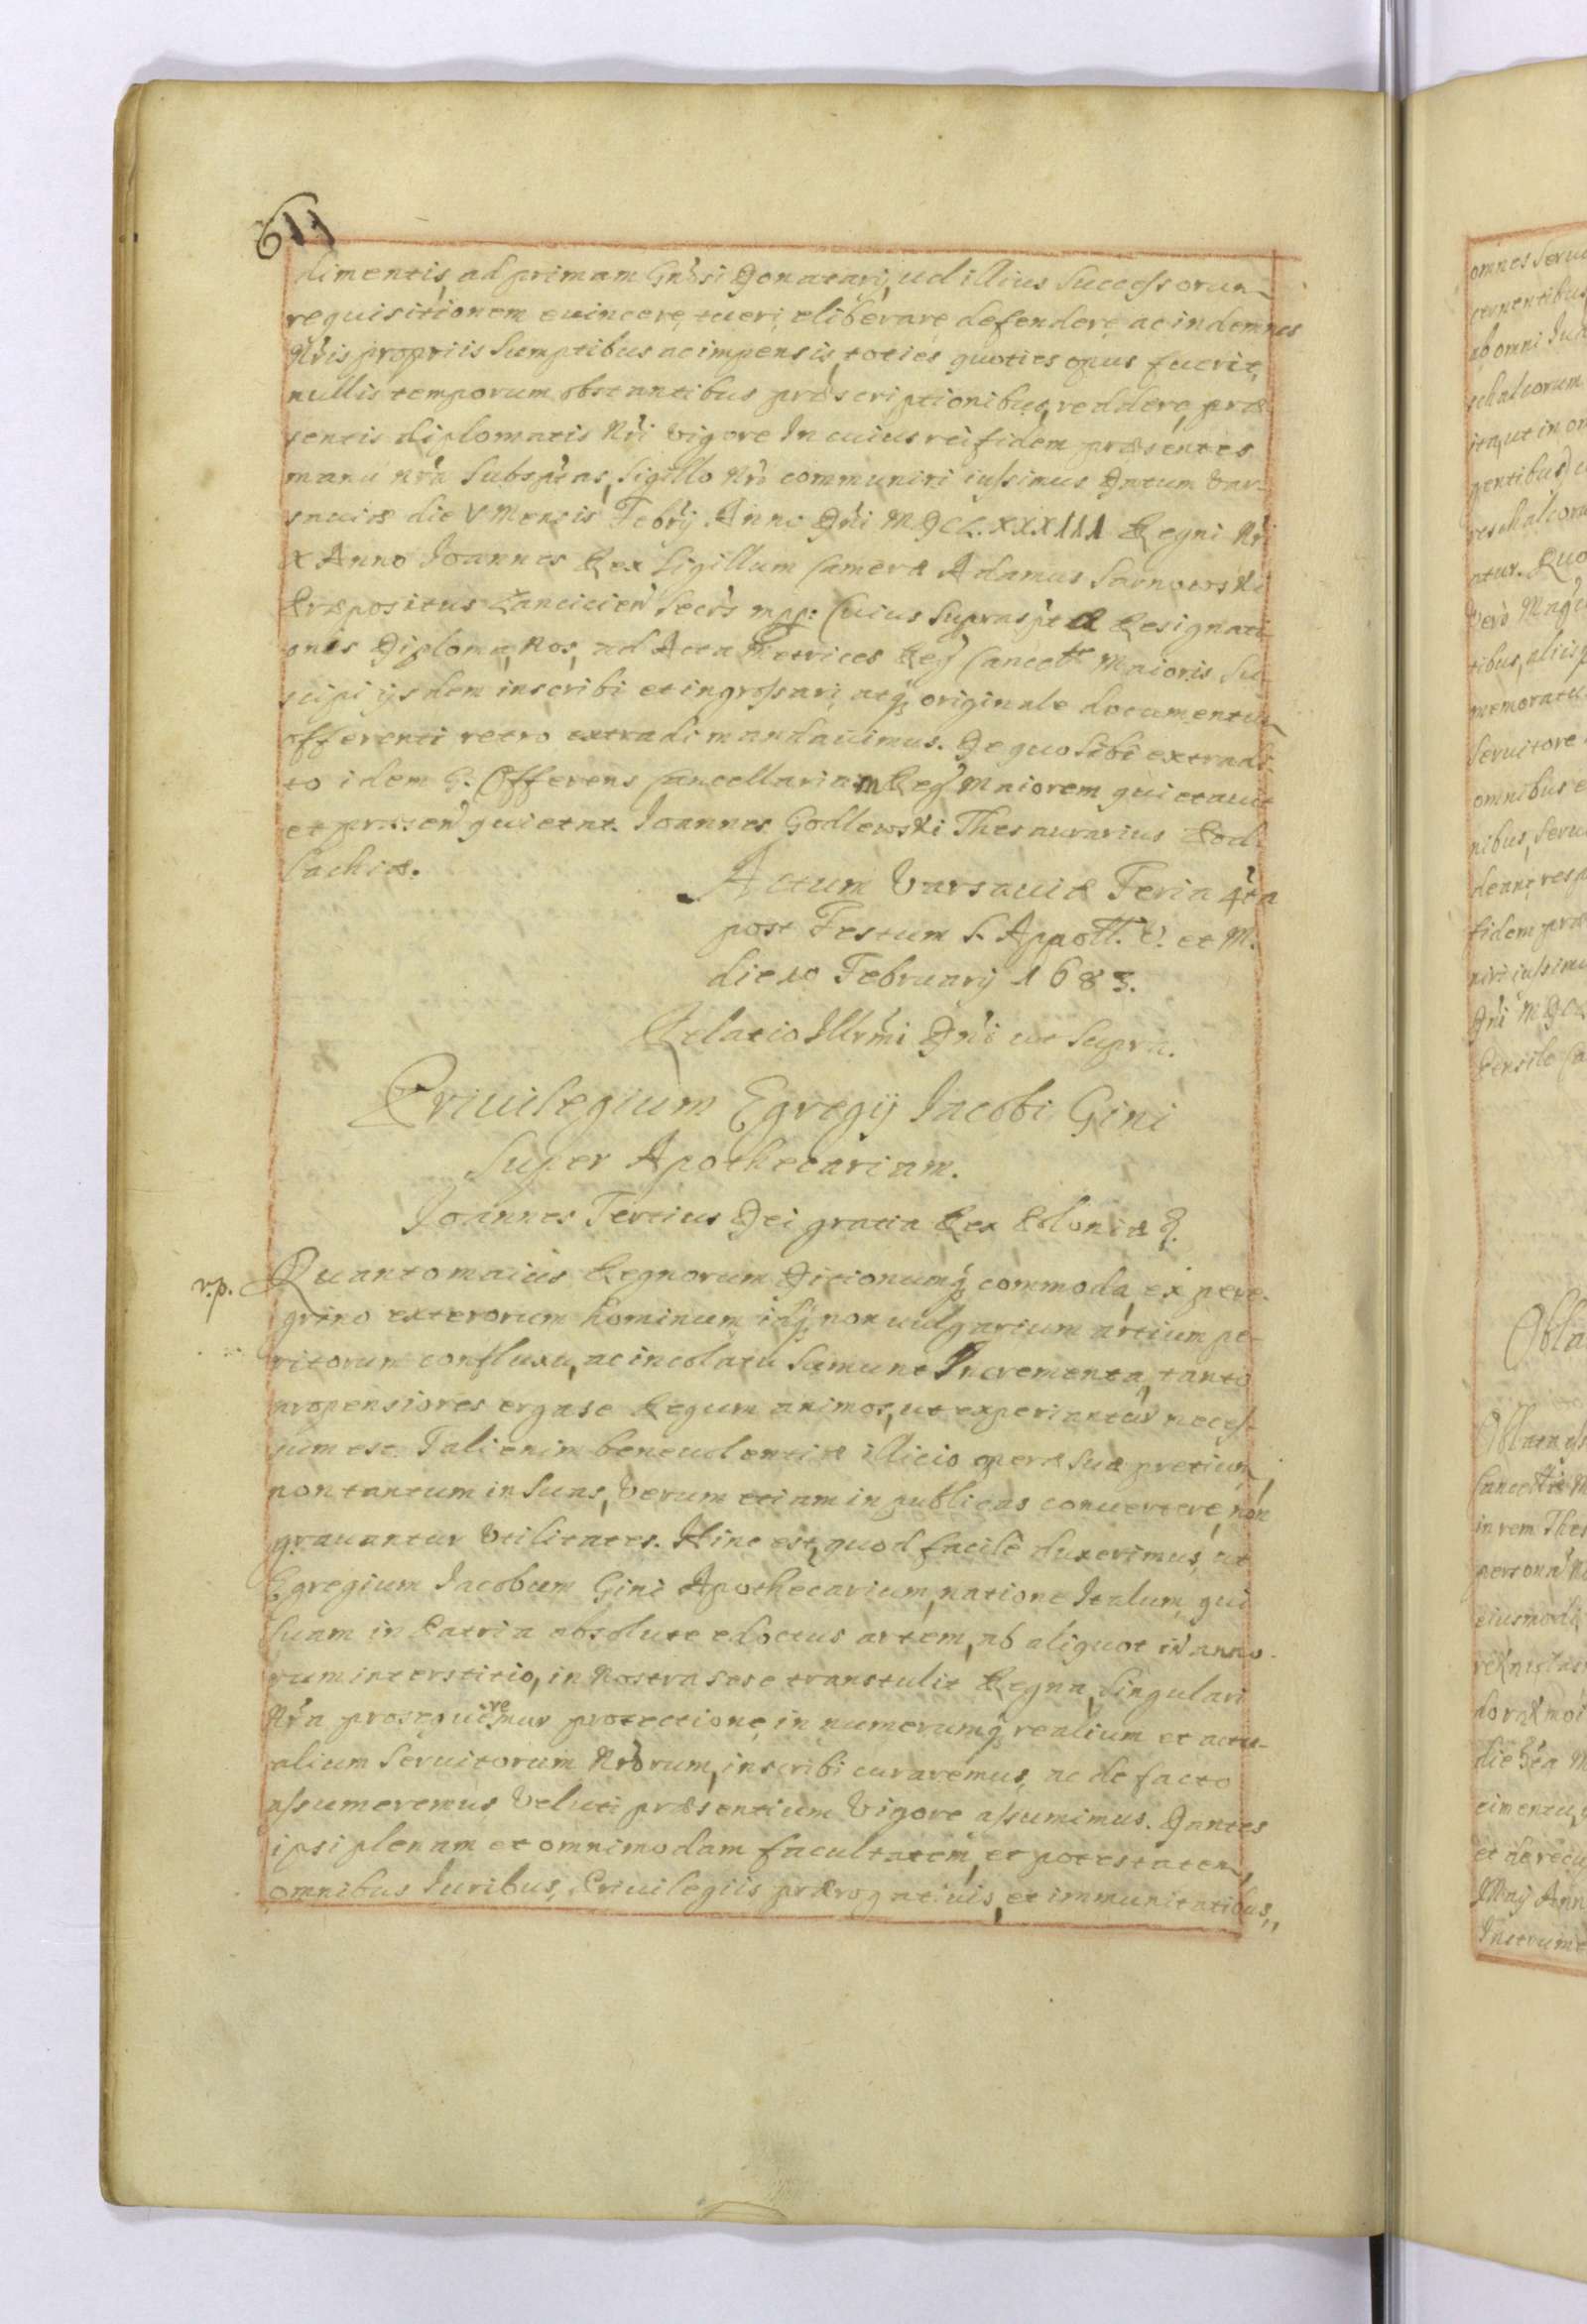 611
dimentis, ad primam Gnŏsi Donatarij, ud illius Successorum
requisitionem euincere, tueri, eliberare defendere, ac indemnes
Nr̃is propriis Sumptibus ac impensis, toties quoties opus fuerit,
nullis temporum obstantibus præscriptionibus, reddere, præ
sentis diplomatis Nr̃i Vigore In cuius rei fidem præsentes
manu nr̃a Subsp̃tas, Sigillo nr̃o communiri iussimus Datum Var-
sauiæ die V Mensis Febr̃ij Anno Dñi MDCLXXXIII Regni Nr̃i
X Anno Joannes Rex Sigillum Cameræ Adamus Sarnowski
Præpositus Lancicien̄ Secr̃s mpp: Cuius Suprasp̃tæ Resignati
onis Diploma, Nos, ad Acta Metrices Reg̃ Cancell̃æ Maioris Su
scipi ijsdem inscribi et ingrossari, atq̃ originale documentum
offerenti retro extradi mandauimus. De quo Sibi extradi
to idem G. Offerens Cancellariam Reg̃ Maiorem quietauit
et præsen̄ quietat. Joannes Godlewski Thesaurarius Pod-
lachiæ.
Actum Varsauiæ Feria 4ta
post Festum S. Appoll. V. et M.
die 10 February 1683.
Relatio Illr̃mi Dñi ut Supra.
Priuilegium Egregij Jacobi Gini
Super Apothecariam.
Joannes Tertius Dei gratia Rex Poloniæ &.
r.p. Quanto maius Regnorum Ditionumq̃ commoda, ex pere-
grino exterorum hominum idq̃ non uulgarium artium pe-
ritorum confluxu, ac incolatu Sumunt Incrementa, tanto
propensiores erga se Regum animos, ut experiantur necess-
sum est. Tali enim beneuolentiæ illicio operæ Suæ pretium,
non tantum in Suas, Verum etiam in publicas conuertere, non
grauantur Vtilitates. Hinc est, quod facile duxerimus, ut
Egregium Jacobum Gini Apothecarium, natione Italum, qui
Suam in Patria absolute edoctus artem, ab aliquot iā anno-
rum interstitio, in Nostra sese transtulit Regna, Singulari
Nr̃a prosequeremur protectione, in numerumq̃ realium et actu-
alium Seruitorum Nr̃orum, inscribi curaremus, ac de facto
assumeremus Veluti præsentium Vigore assumimus. Dantes
ipsi plenam et omnimodam facultatem, et potestatem,
omnibus Iuribus, Priuilegiis prærogatiuis, et immunitatibus,